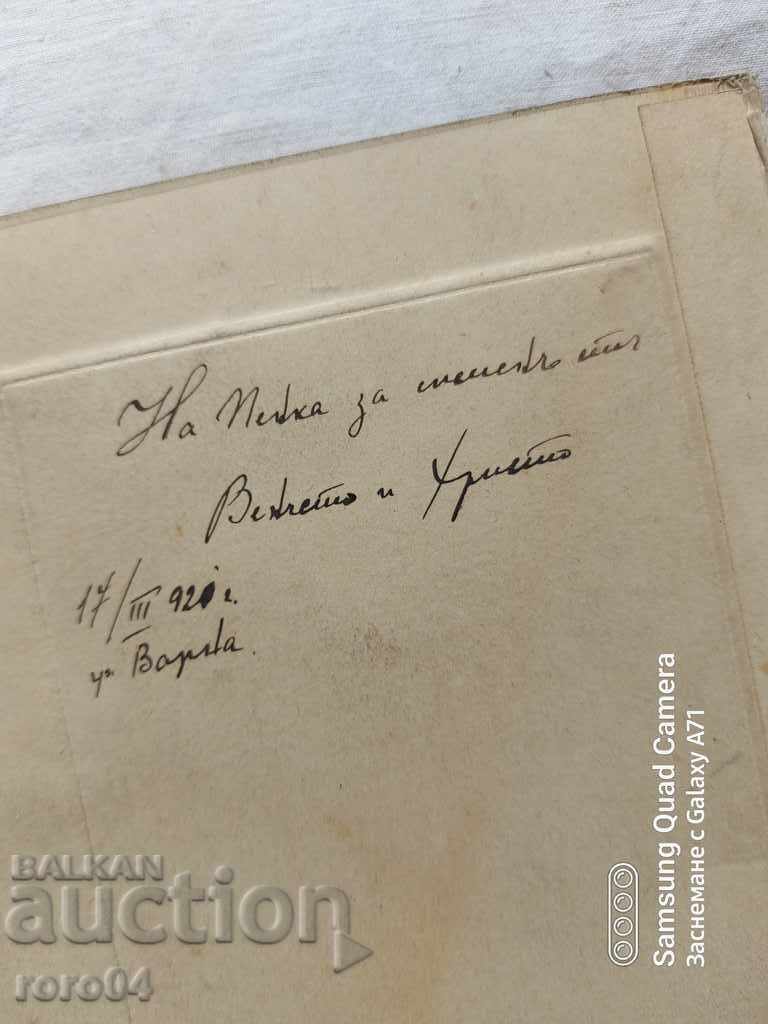 На Пенка за
Венчето и Христо
17/III 920 г.
гр. Варна.
BALKAN
auction
roro04
Samsung Quad Camera
Заснемане с Galaxy A71